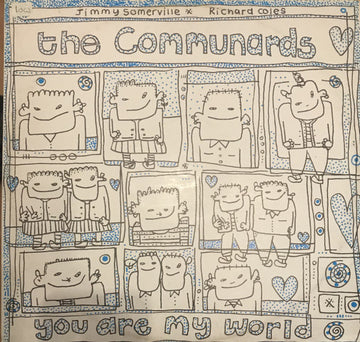 Jimmy Somerville x Richard Coles
the Communards
you are my world